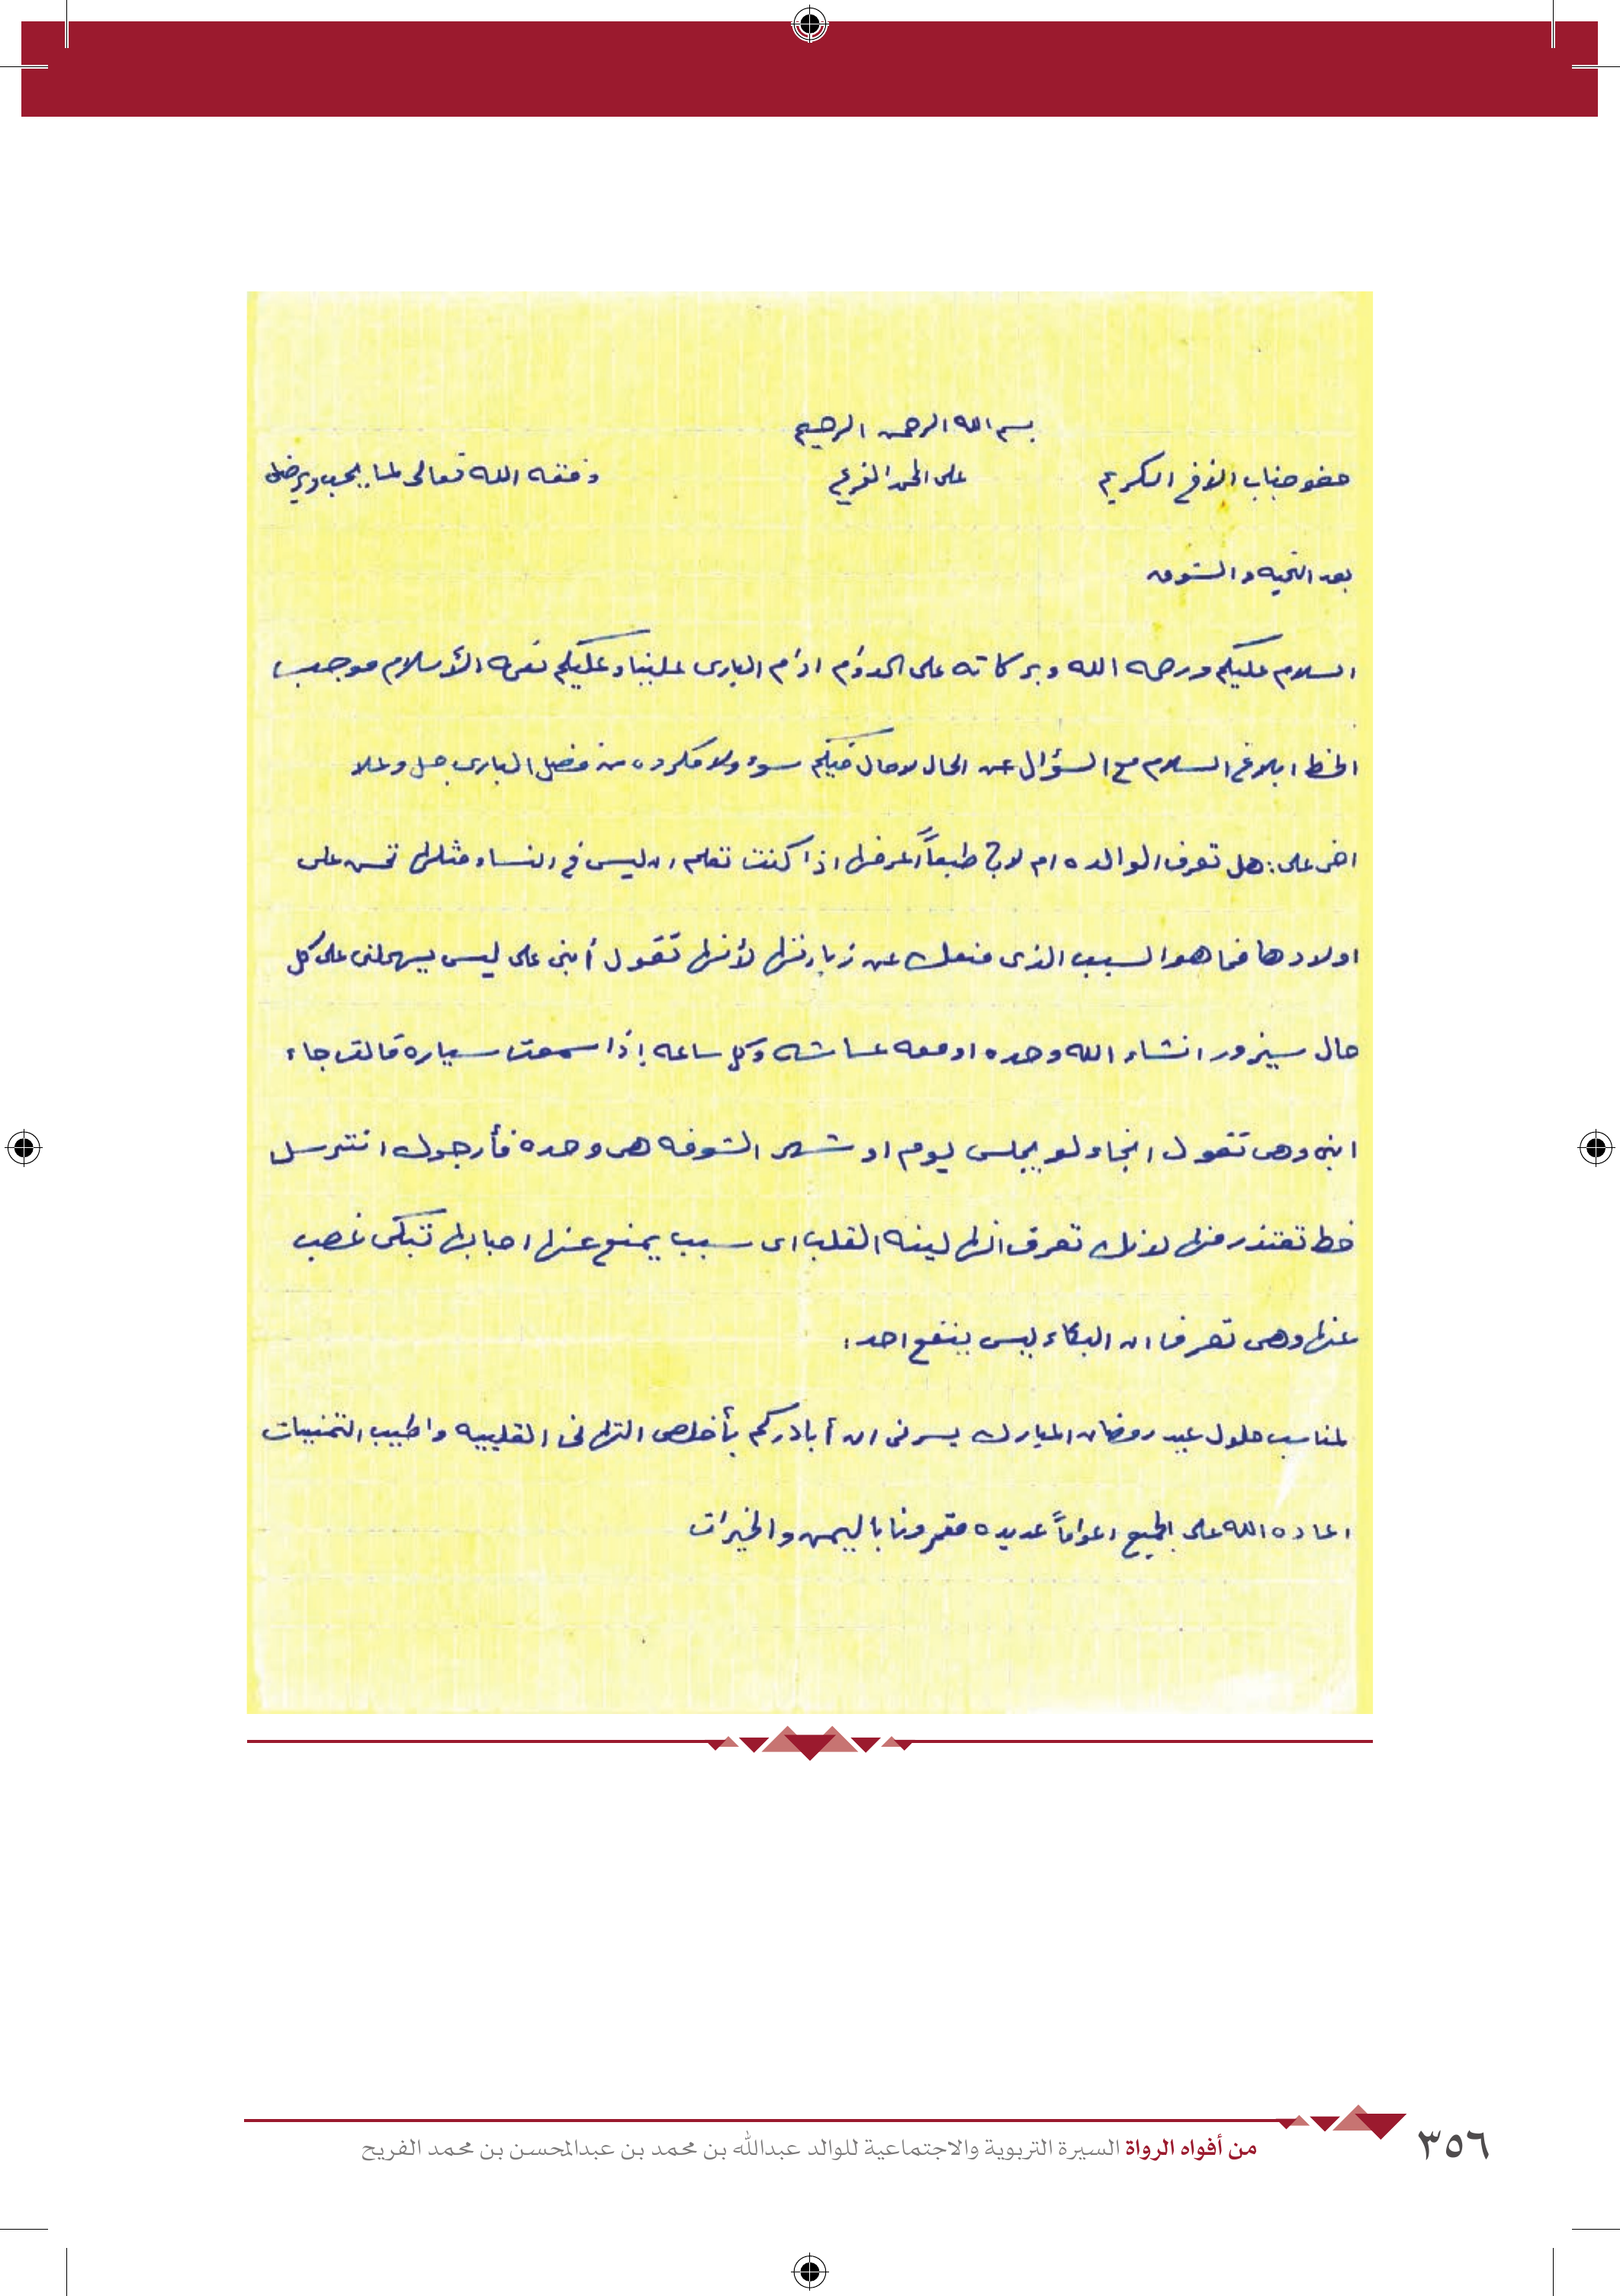 بسم الله الرحمن الرحيم
حضو جناب الأخ الكريم على الحمد الفريح وفقه الله تعالى لما يحب ويرضى
بعد التحيه والشوق
السلام عليكم ورحمه الله وبركاته على الدوام ادام البارى علينا وعليكم نعمه الأسلام موجب
الخط ابلاغ السلام مع السؤال عن الحال لاحال فيكم سوء ولا مكروه من فضل البارى جل وعلا
اخى على: هل تعرف الوالده ام لا؟ طبعاً اعرفها اذا كنت تعلم ان ليس فى النساء مثلها تحن على
اولادها فما هو السبب الذى منعك عن زيارتها لأنها تقول أبنى على ليس يهملنى على كل
حال سيزور انشاء الله وحده او معه عائشه وكل ساعه إذا سمعت سياره قالت جاء
ابنى وهى تقول انجاء لو يجلس يوم او شهر الشوفه هى وحده فأرجوك انترسل
خط تعتذر منها لانك تعرف انها لينه القلب اى سبب يمنع عنها احبابها تبكى غصب
عنها وهى تعرف ان البكاء ليس ينفع احد:
لمناسب حلول عيد رمضان المبارك يسرنى ان أبادركم بأخلص التهانى القلبيه واطيب التمنيات
اعاده الله على الجميع اعواماً عديده مقرونا باليمن والخيرات
من أفواه الرواة السيرة التربوية والاجتماعية للوالد عبدالله بن محمد بن عبدالمحسن بن محمد الفريح
٣٥٦